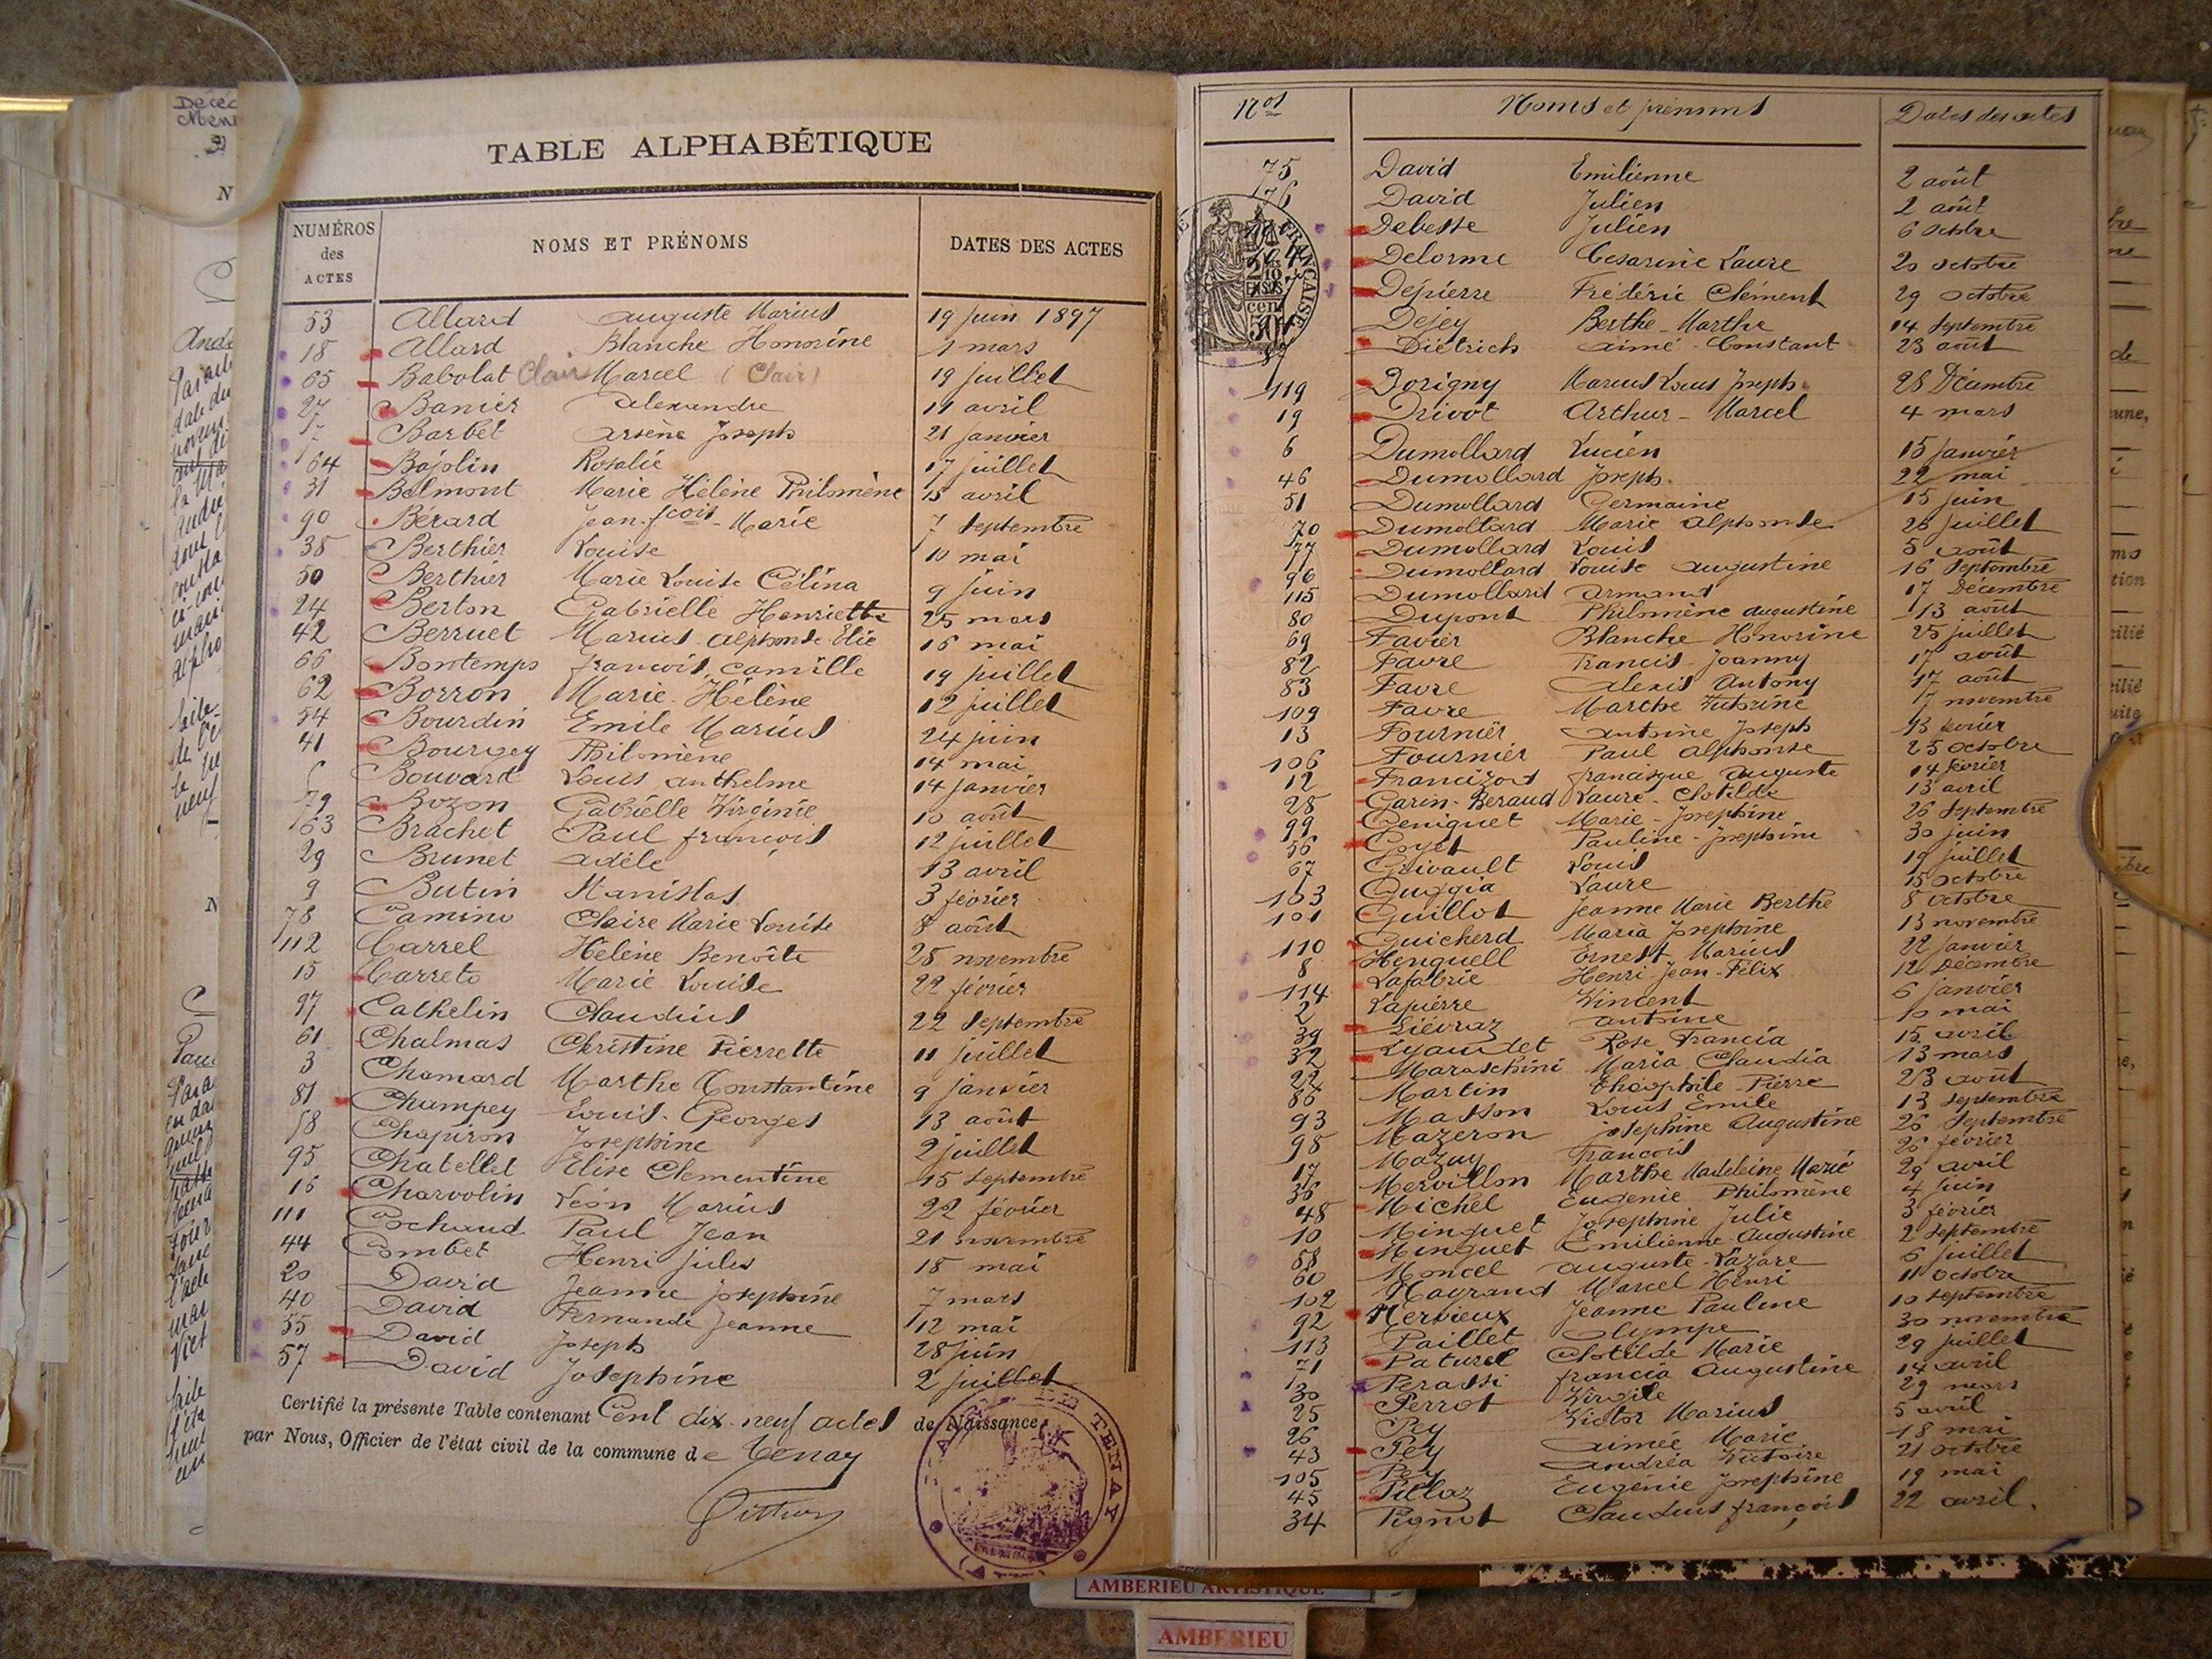 TABLE ALPHABÉTIQUE
NUMÉROS des ACTES NOMS ET PRÉNOMS DATES DES ACTES
53 Allard Auguste Marius 19 juin 1897
18 Allard Blanche Honorine 1 mars
65 Babolat Clair Marcel (Clair) 19 juillet
27 Banier Alexandre 11 avril
7 Barbet Arsène Joseph 21 janvier
64 Bajolin Rosalie 17 juillet
31 Belmont Marie Hélène Philomène 15 avril
90 Bérard Jean-fcois-Marie 7 Septembre
38 Berthier Louise 10 mai
50 Berthier Marie Louise Célina 9 juin
24 Berton Gabrielle Henriette 25 mars
42 Berruet Marius Alphonse Elie 16 mai
66 Bontemps françois, Camille 19 juillet
62 Borron Marie-Hélène 12 juillet
54 Bourdin Emile Marius 24 juin
41 Bourgey Philomène 14 mai
Bouvard Louis Anthelme 14 janvier
79 Bozon Gabrielle Virginie 10 août
63 Brachet Paul françois 12 juillet
29 Brunet Adèle 13 avril
9 Butin Stanislas 3 février
78 Camino Claire Marie Louise 8 août
112 Carrel Hélène Benoîte 25 novembre
15 Carreto Marie Louise 22 février
97 Cathelin Claudius 22 Septembre
61 Chalmas Christine Pierrette 11 juillet
3 Chamard Marthe Constantine 9 janvier
81 Champey Louis-Georges 13 août
58 Chapiron Josephine 2 juillet
95 Chatellet Elise Clementine 15 Septembre
16 Charvolin Léon Marius 22 février
111 Cochaud Paul Jean 21 novembre
44 Combet Henri jules 18 mai
20 David Jeanne Josephine 7 mars
40 David Fernande Jeanne 12 mai
55 David Joseph 28 juin
57 David Josephine 2 juillet
Certifié la présente Table contenant Cent dix-neuf actes de Naissance,
par Nous, Officier de l'état civil de la commune de Tenay
TENAY
Nos Noms et prénoms Dates des actes
75 David Emilienne 2 août
76 David Julien 2 août
Debesse Julien 6 Octobre
Delorme Cesarine Laure 20 Octobre
Depierre Frédéric Clément 29 Octobre
Dejey Berthe-Marthe 14 Septembre
87 Diétrich Aimé-Constant 23 août
119 Dorigny Marius Louis Joseph 28 Décembre
19 Drivot Arthur-Marcel 4 mars
6 Dumollard Lucien 15 janvier
46 Dumollard Joseph 22 mai
51 Dumollard Germaine 15 juin
70 Dumollard Marie Alphonse 26 juillet
77 Dumollard Louis 5 août
96 Dumollard Louise Augustine 16 Septembre
115 Dumollard Armand 17 Décembre
80 Dupont Philomène Augustine 13 août
69 Favier Blanche Honorine 25 juillet
82 Favre Francis-Joanny 17 août
83 Favre Alexis Antony 17 août
109 Favre Marthe Victorine 7 novembre
13 Fournier Antoine Joseph 13 février
106 Fournier Paul Alphonse 25 octobre
12 Francisque Auguste 14 février
28 Garin-Beraud Laure-Clotilde 13 avril
99 Geniquet Marie-Josephine 26 Septembre
56 Goyet Pauline-Josephine 30 juin
67 Grivault Louis 19 juillet
103 Guggia Laure 15 Octobre
101 Guillot Jeanne Marie Berthe 8 Octobre
110 Guicherd Maria Josephine 13 novembre
8 Henguell Ernest Marius 22 janvier
114 Lafabrie Henri-Jean-Félix 12 Décembre
2 Lapierre Vincent 6 janvier
39 Liévraz Antoine 10 mai
32 Lyaudet Rose Francia 15 avril
22 Maraschini Maria Claudia 13 mars
86 Martin Théophile-Pierre 23 août
93 Masson Louis Emile 13 Septembre
98 Mazeron Josephine Augustine 26 Septembre
17 Mazuy françois 26 février
36 Mervillon Marthe Madeleine Marie 29 avril
48 Michel Eugenie Philomène 4 juin
10 Minguet Josephine Julie 3 février
88 Minguet Emilienne-Augustine 2 Septembre
60 Moncel Auguste-Lazare 6 juillet
102 Mayrand Marcel Henri 11 octobre
92 Nervieux Jeanne Pauline 10 septembre
113 Paillet Olympe 30 novembre
71 Paturel Clotilde Marie 29 juillet
30 Perassi francia Augustine 14 avril
25 Perrot Virgile 29 mars
26 Pey Victor Marius 5 avril
43 Pey Aimée Marie 18 mai
105 Pey Andréa Victoire 21 octobre
45 Pillaz Eugénie Josephine 19 mai
34 Pignot Claudius françois 22 avril.
AMBERIEU ARTISTIQUE
AMBERIEU